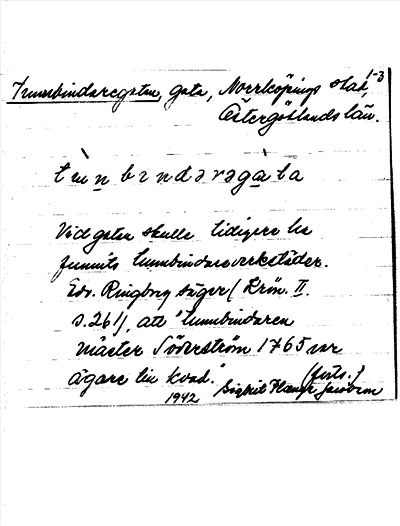 1-3
Tunnbindaregatan, gata, Norrköpings stad,
Östergötlands län.
tùn bindarəgàta
Vid gatan skulle tidigare ha
funnits tunnbindareverkstäder.
Edv. Ringborg säger (Krön. II.
s. 261), att "tunnbindaren
mäster Söderström 1765 var
ägare till kvad."
(forts.)
1942 Sigbrit Plaenge Jacobson